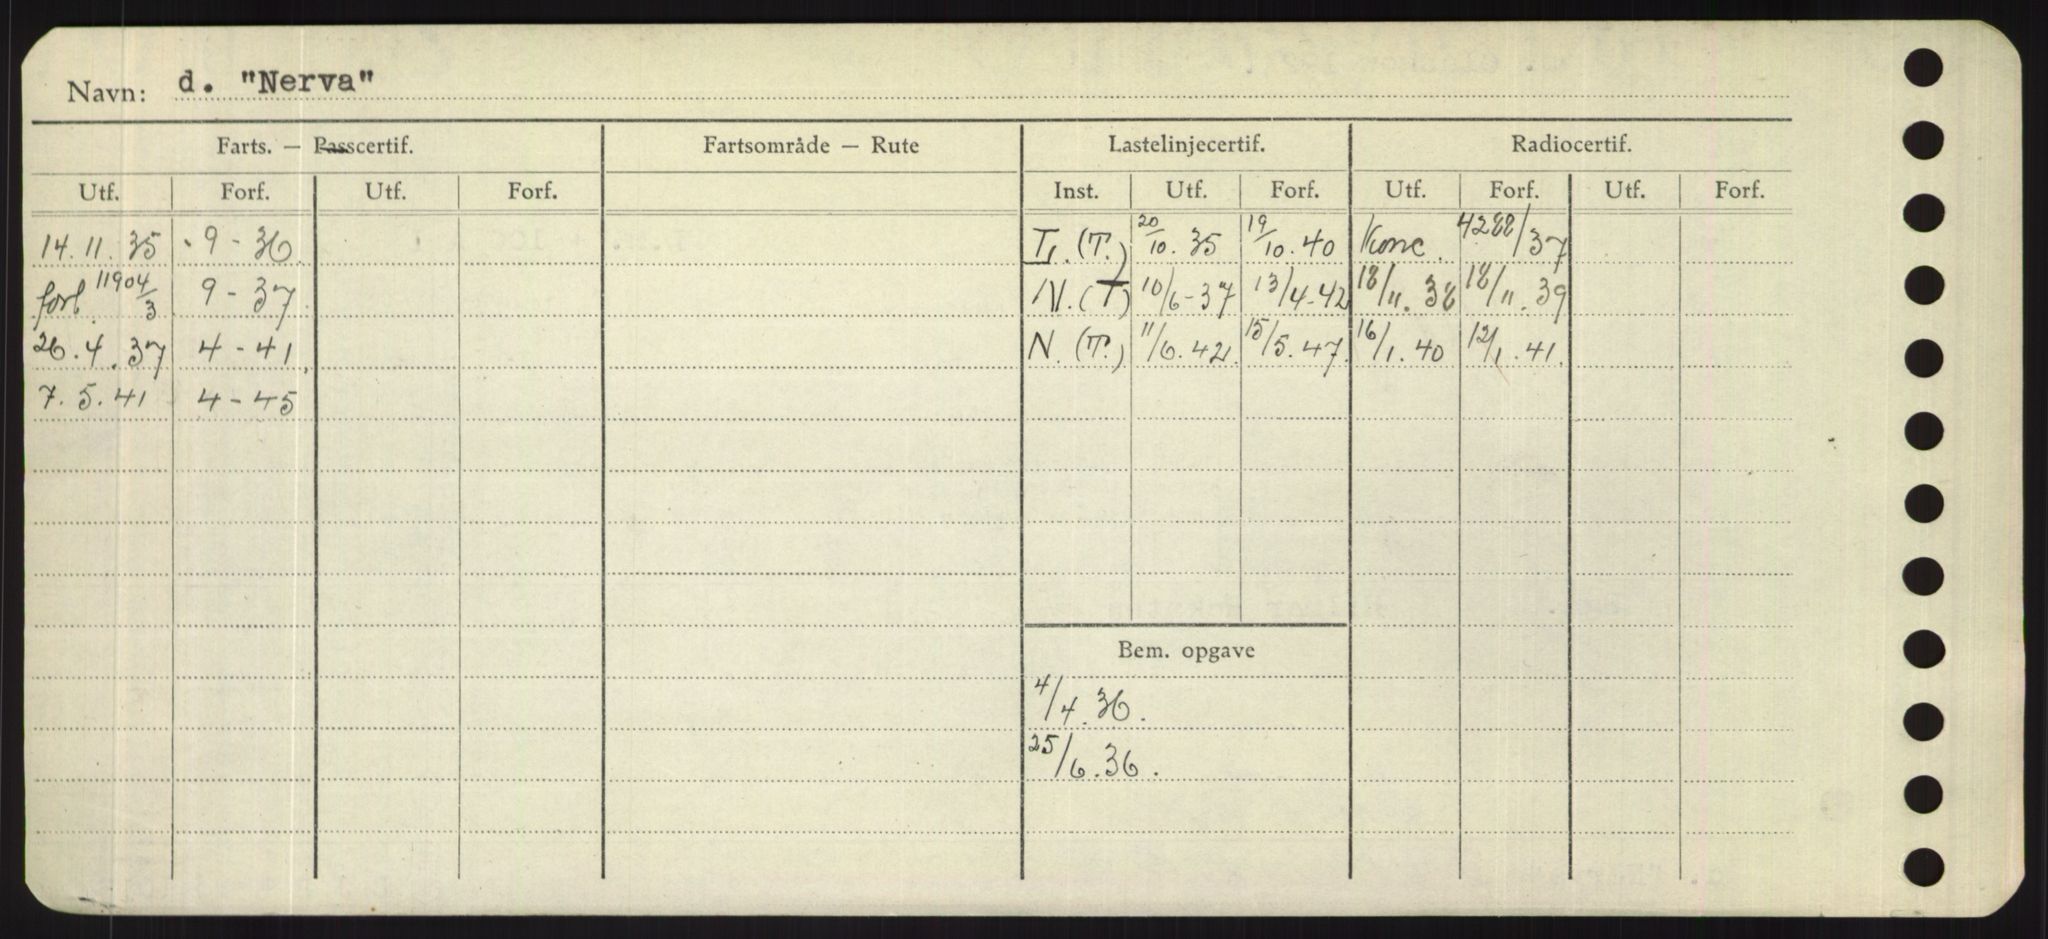 Navn: d. "Nerva"
Farts. — Passcertif. Fartsområde — Rute Lastelinjecertif. Radiocertif.
Utf. Forf. Utf. Forf. Inst. Utf. Forf. Utf. Forf. Utf. Forf.
14.11.35 9-36 L.(T.) 20/10.35 19/10.40 Konc. 4288/37
forl. 11904/3 9-37 N.(T) 10/6-37 13/4-42 18/11.38 18/11.39
26.4.37 4-41 N.(T.) 11/6.42 15/5.47 16/1.40 12/1.41
7.5.41 4-45
Bem. opgave
4/4.36.
25/6.36.